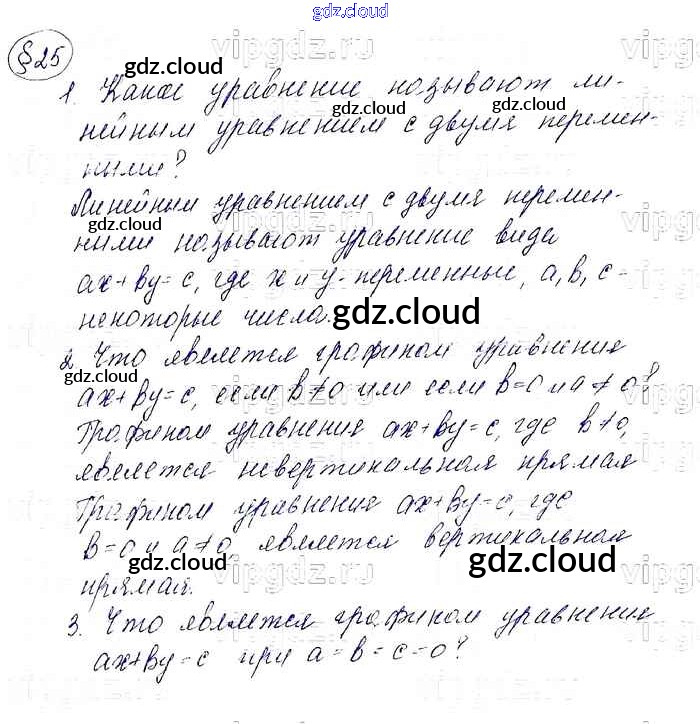 gdz.cloud
§25
1. Какое уравнение называют ли-
нейным уравнением с двумя перемен-
ными?
Линейным уравнением с двумя перемен-
ными называют уравнение вида
ax+by=c, где x и y - переменные, a, b, c -
некоторые числа.
2. Что является графиком уравнения
ax+by=c, если b≠0 или если b=0 и a≠0?
Графиком уравнения ax+by=c, где b≠0,
является невертикальная прямая
Графиком уравнения ax+by=c, где
b=0 и a≠0, является вертикальная
прямая.
3. Что является графиком уравнения
ax+by=c при a=b=c=0?